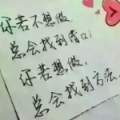 你若不想做
总会找到借口;
你若想做,
总会找到方法.